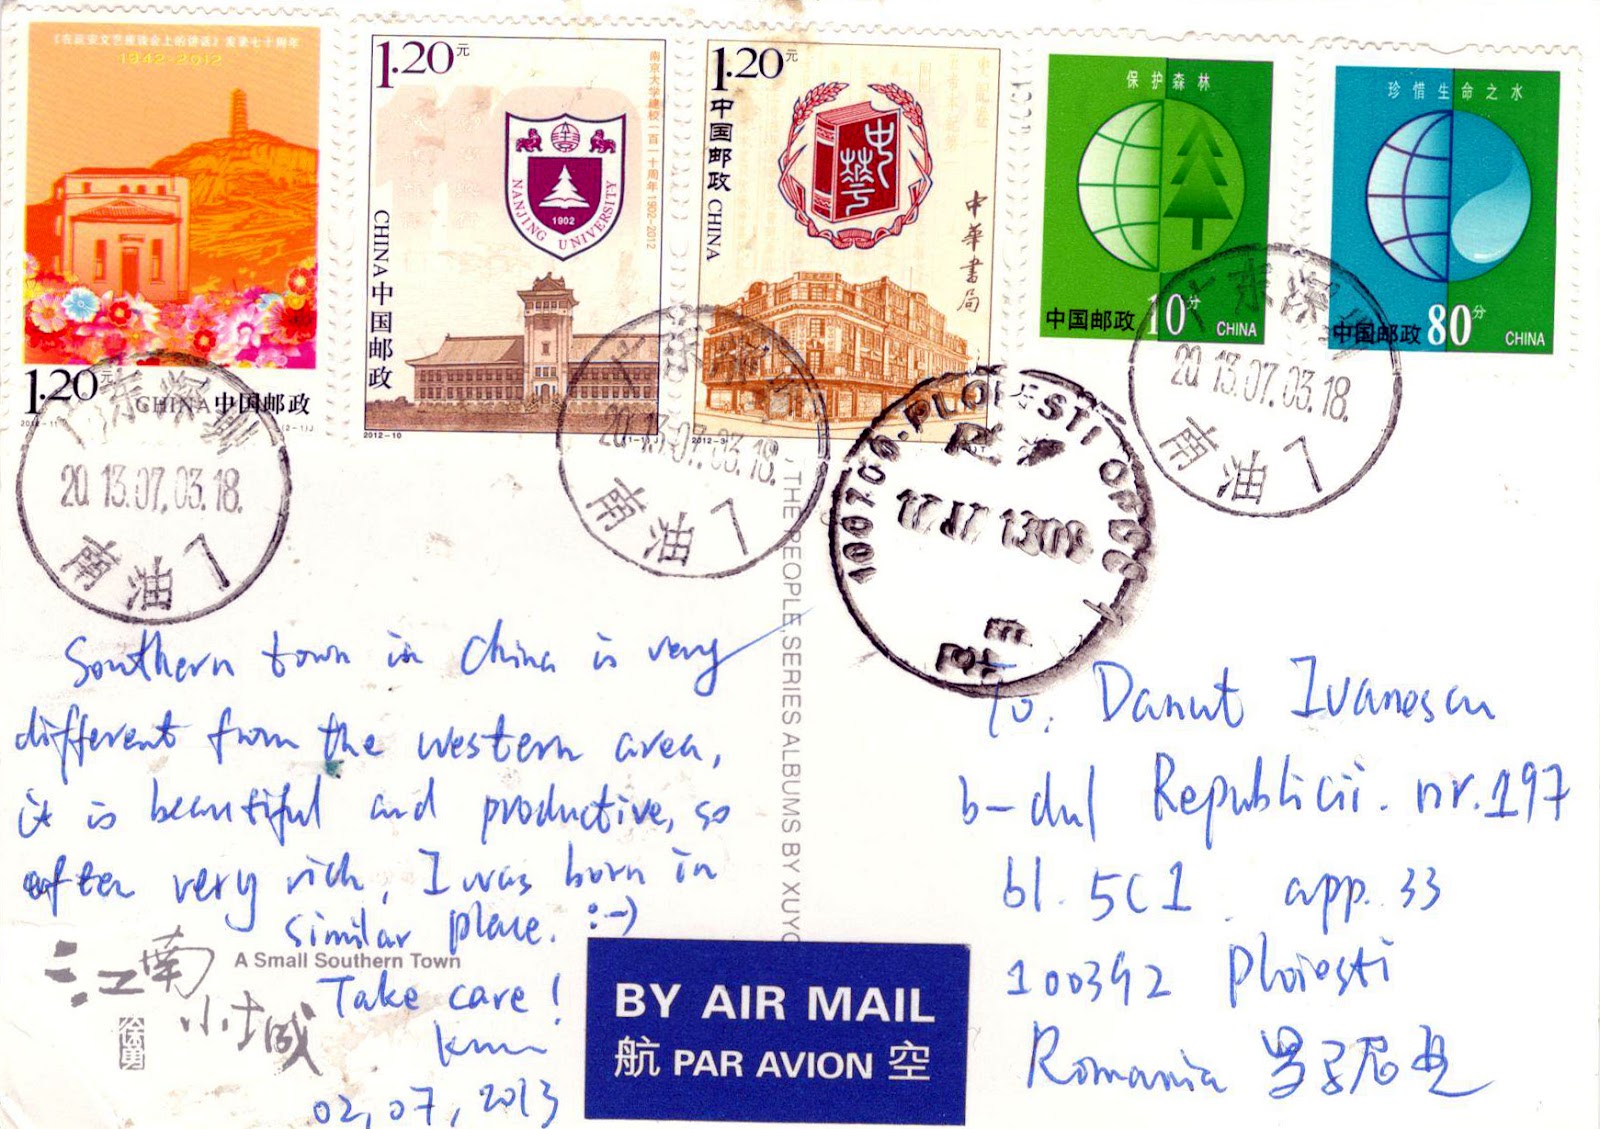 《在延安文艺座谈会上的讲话》发表七十周年
1942-2012
1.20元
CHINA中国邮政
2012-11
(2-1)J
1.20元
南京大学建校一百一十周年 1902-2012
NANJING UNIVERSITY
1902
CHINA中国邮政
2012-10
(1-1)J
1.20元
中国邮政 CHINA
中華
中华书局
2012-3
保护森林
中国邮政 10分 CHINA
珍惜生命之水
中国邮政 80分 CHINA
广东深圳
2013.07.03.18.
南油 7
广东深圳
2013.07.03.18.
南油 7
PLOIESTI
广东深圳
2013.07.03.18.
南油 7
THE PEOPLE, SERIES ALBUMS BY XUYO
Southern town in China is very
different from the western area,
it is beautiful and productive, so
often very rich, I was born in
similar place. :-)
Take care!
02,07,2013
江南
小城
A Small Southern Town
徐勇
To: Danut Ivanescu
b-dul Republicii. nr.197
bl. 5C1. app. 33
100392 Ploiesti
Romania 罗马尼亚
BY AIR MAIL
航 PAR AVION 空